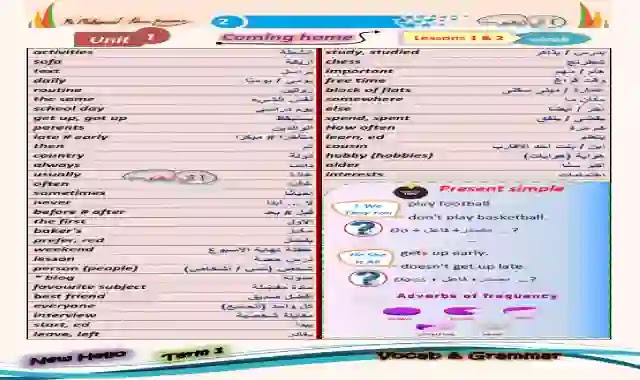 2
Unit 1
Coming home
Lessons 1 & 2
activities أنشطة
sofa أريكة
text
daily يومي / يوميًا
routine روتين
the same نفس الشيء
school day يوم دراسي
get up, got up يستيقظ
parents الوالدين
late # early متأخرا # مبكرا
then ثم
country دولة
always دائما
usually عادة
often غالبا
sometimes أحيانا
never لا ... ابدا
before # after قبل # بعد
the first الأول
baker's مخبز
prefer, red يفضل
weekend عطلة نهاية الاسبوع
lesson درس حصة
person (people) شخص (ناس / أشخاص)
* blog مدونة
favourite subject مادة مفضلة
best friend أفضل صديق
everyone كل واحد (الجميع)
interview مقابلة شخصية
start, ed يبدأ
leave, left يغادر
study, studied يدرس / يذاكر
chess شطرنج
important هام / مهم
free time وقت فراغ
block of flats عمارة / مبنى سكني
somewhere مكان ما
else آخر / أيضا
spend, spent يقضي / ينفق
How often كم مرة
learn, ed يتعلم
cousin ابن / بنت احد الاقارب
hobby (hobbies) هواية (هوايات)
older أكبر سنا
interests اهتمامات
Present simple
I We
They You
play football
don't play basketball.
Do + فاعل + مصدر ... ?
He She
It Ali
gets up early.
doesn't get up late.
Does + فاعل + مصدر ... ?
Adverbs of frequency
New Hello
Term 1
Vocab & Grammar